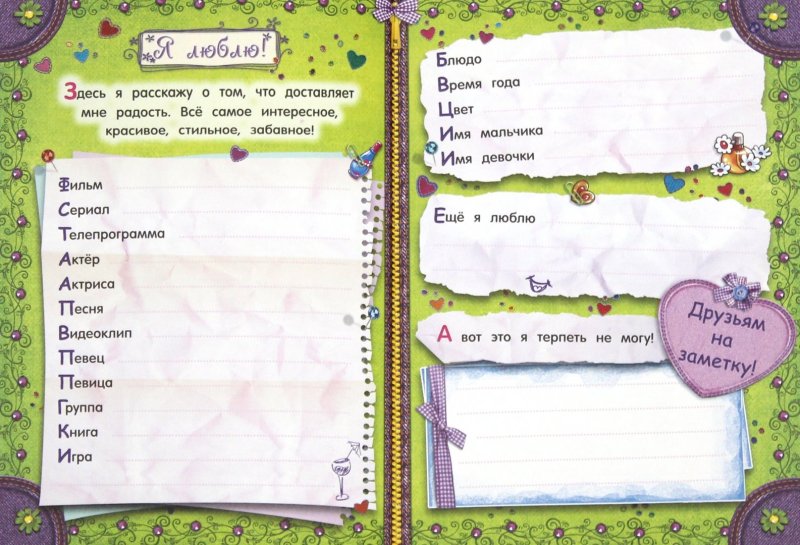 Я люблю!
Здесь я расскажу о том, что доставляет
мне радость. Всё самое интересное,
красивое, стильное, забавное!
Фильм
Сериал
Телепрограмма
Актёр
Актриса
Песня
Видеоклип
Певец
Певица
Группа
Книга
Игра
Блюдо
Время года
Цвет
Имя мальчика
Имя девочки
Ещё я люблю
А вот это я терпеть не могу!
Друзьям
на
заметку!